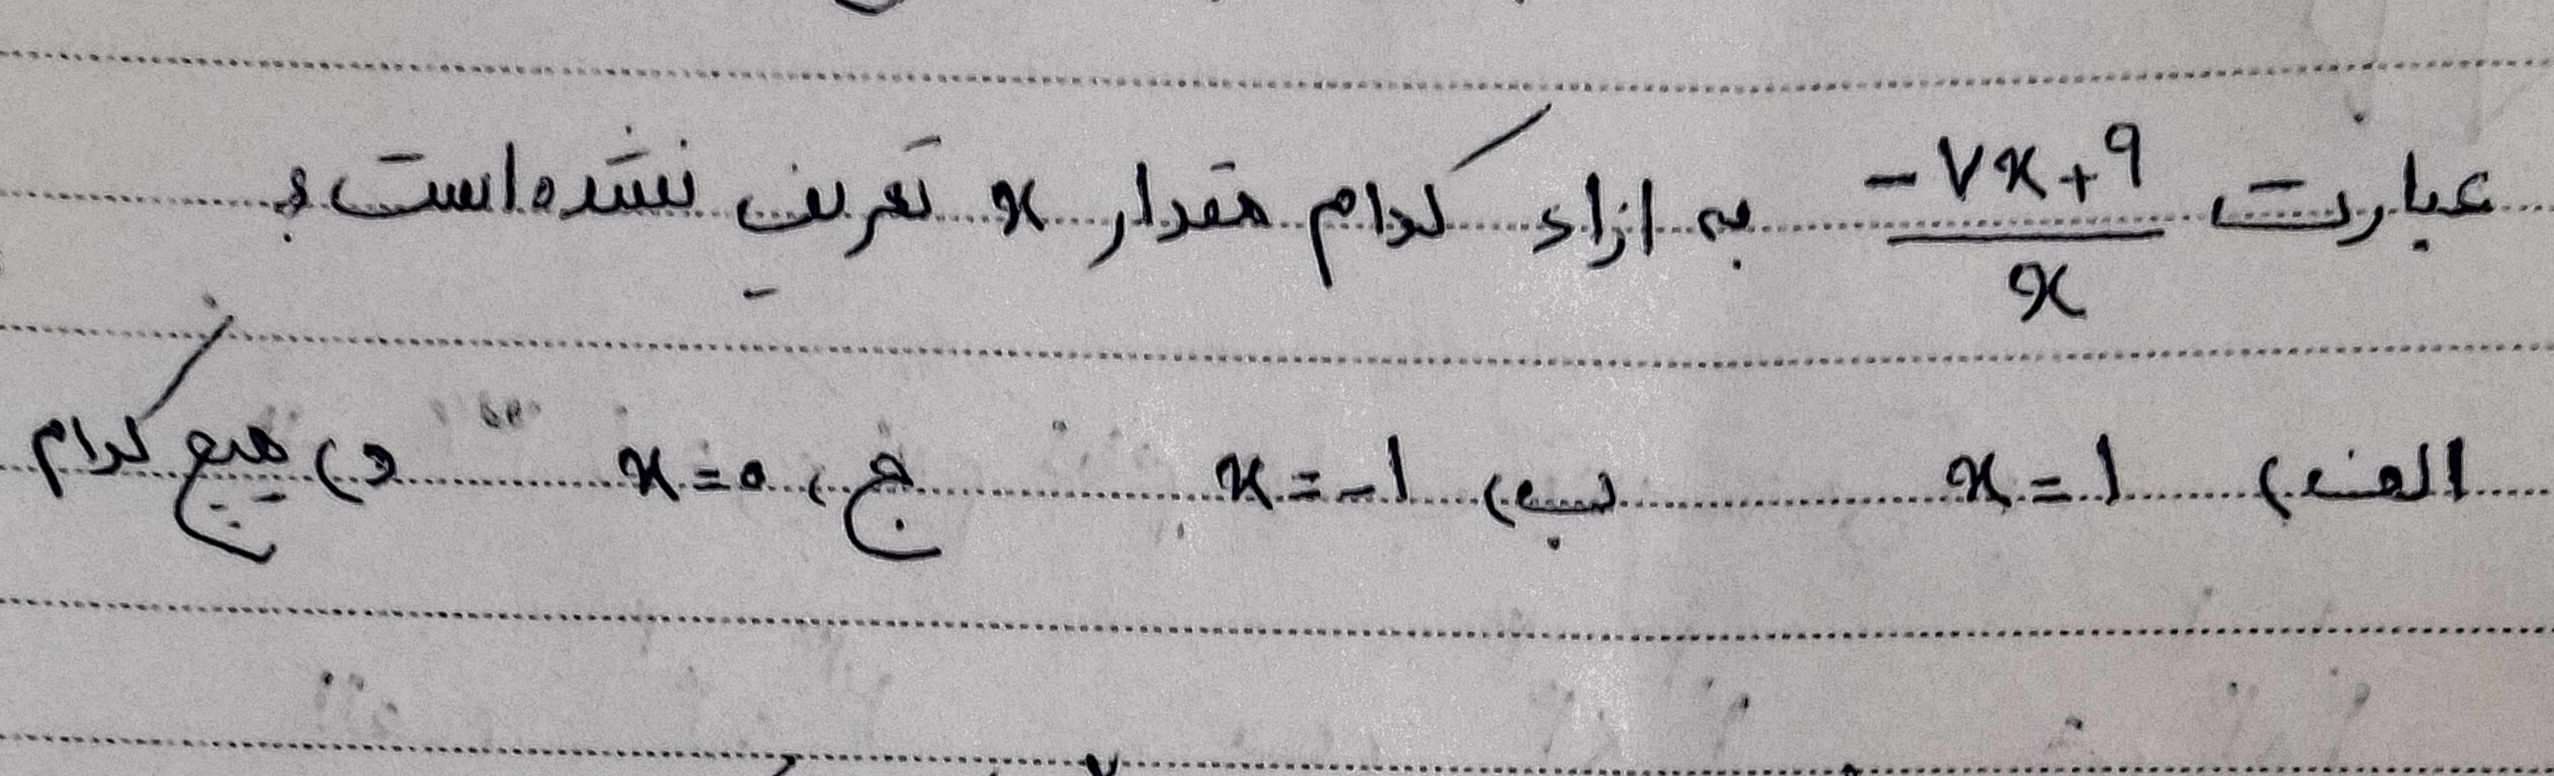 عبارت (-۷x+۹)/x به ازاء کدام مقدار x تعریف نشده است؟
الف) x=۱ ب) x=-۱ ج) x=۰ د) هیچ کدام